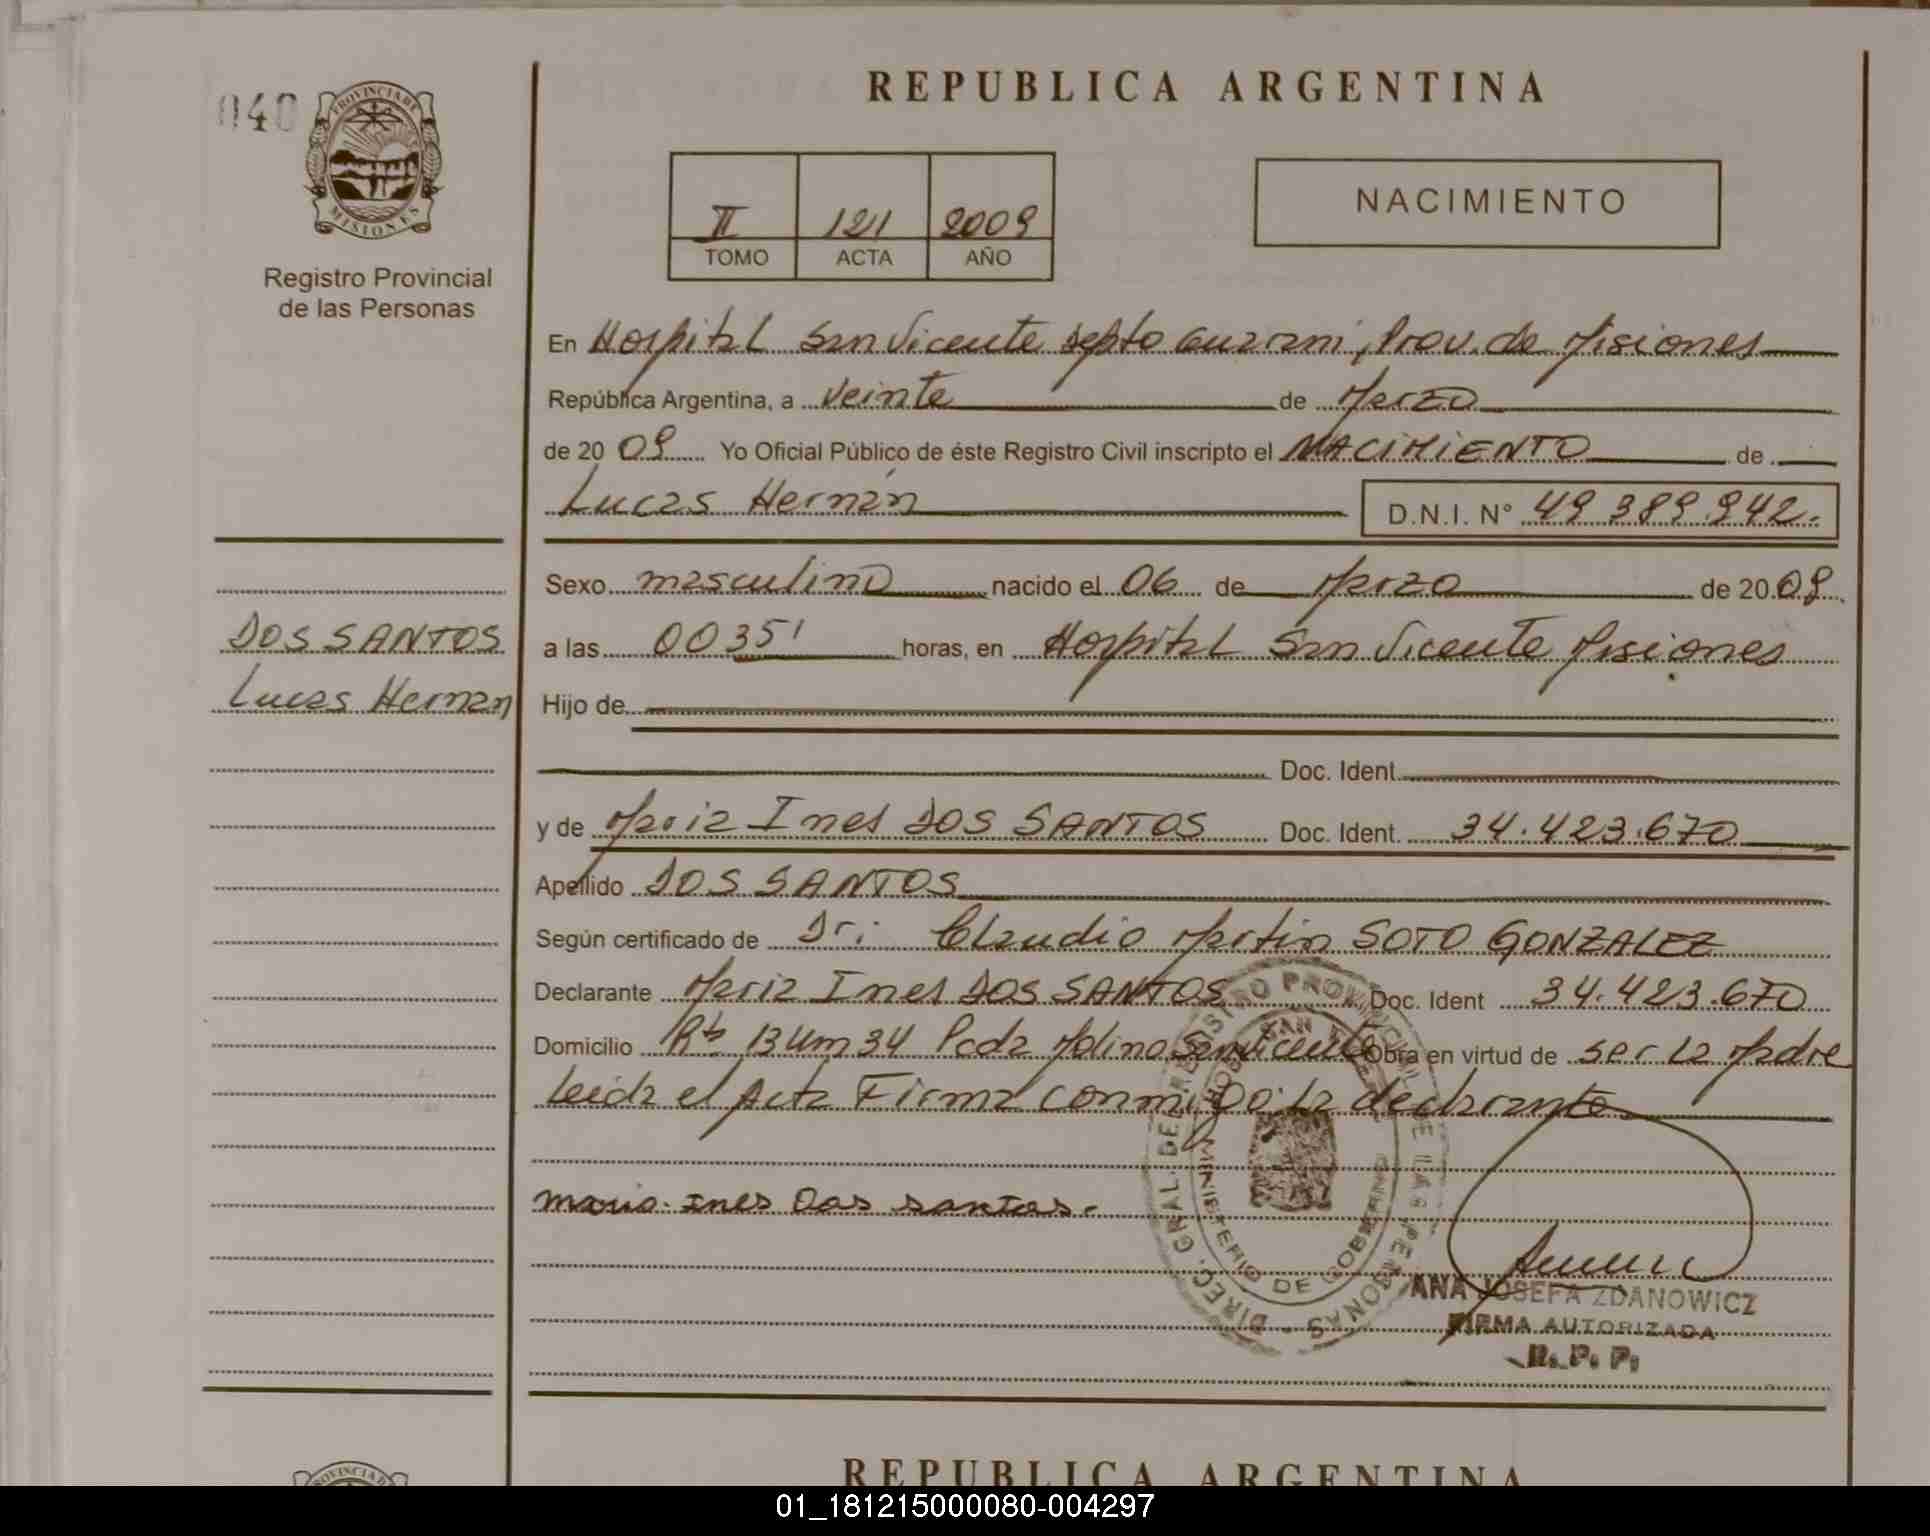 040
PROVINCIA DE
MISIONES
Registro Provincial
de las Personas
DOS SANTOS
Lucas Hernan
REPUBLICA ARGENTINA
II 121 2009
TOMO ACTA AÑO
NACIMIENTO
En Hospital San Vicente Depto Guarani, Prov. de Misiones
República Argentina, a veinte de Marzo
de 2009 Yo Oficial Público de éste Registro Civil inscripto el NACIMIENTO de
Lucas Hernán D.N.I. N° 49 389.942.
Sexo masculino nacido el 06 de Marzo de 2009
a las 0035' horas, en Hospital San Vicente Misiones
Hijo de
Doc. Ident.
y de Maria Ines DOS SANTOS Doc. Ident. 34.423.670
Apellido DOS SANTOS
Según certificado de Dr: Claudio Martin SOTO GONZALEZ
Declarante Maria Ines DOS SANTOS Doc. Ident 34.423.670
Domicilio 13 Km 34 Pcda Molino San Vicente Obra en virtud de ser la Madre
Leida el Acta Firma conmigo: la declarante
maria. ines Dos santos.
DIREC. GRAL. DE REGISTRO PROVINCIAL DE LAS PERSONAS
MINISTERIO DE GOBIERNO
HOSP. SAN VICENTE
ANA JOSEFA ZDANOWICZ
FIRMA AUTORIZADA
R. P. P.
PROVINCIA DE
REPUBLICA ARGENTINA
01_181215000080-004297